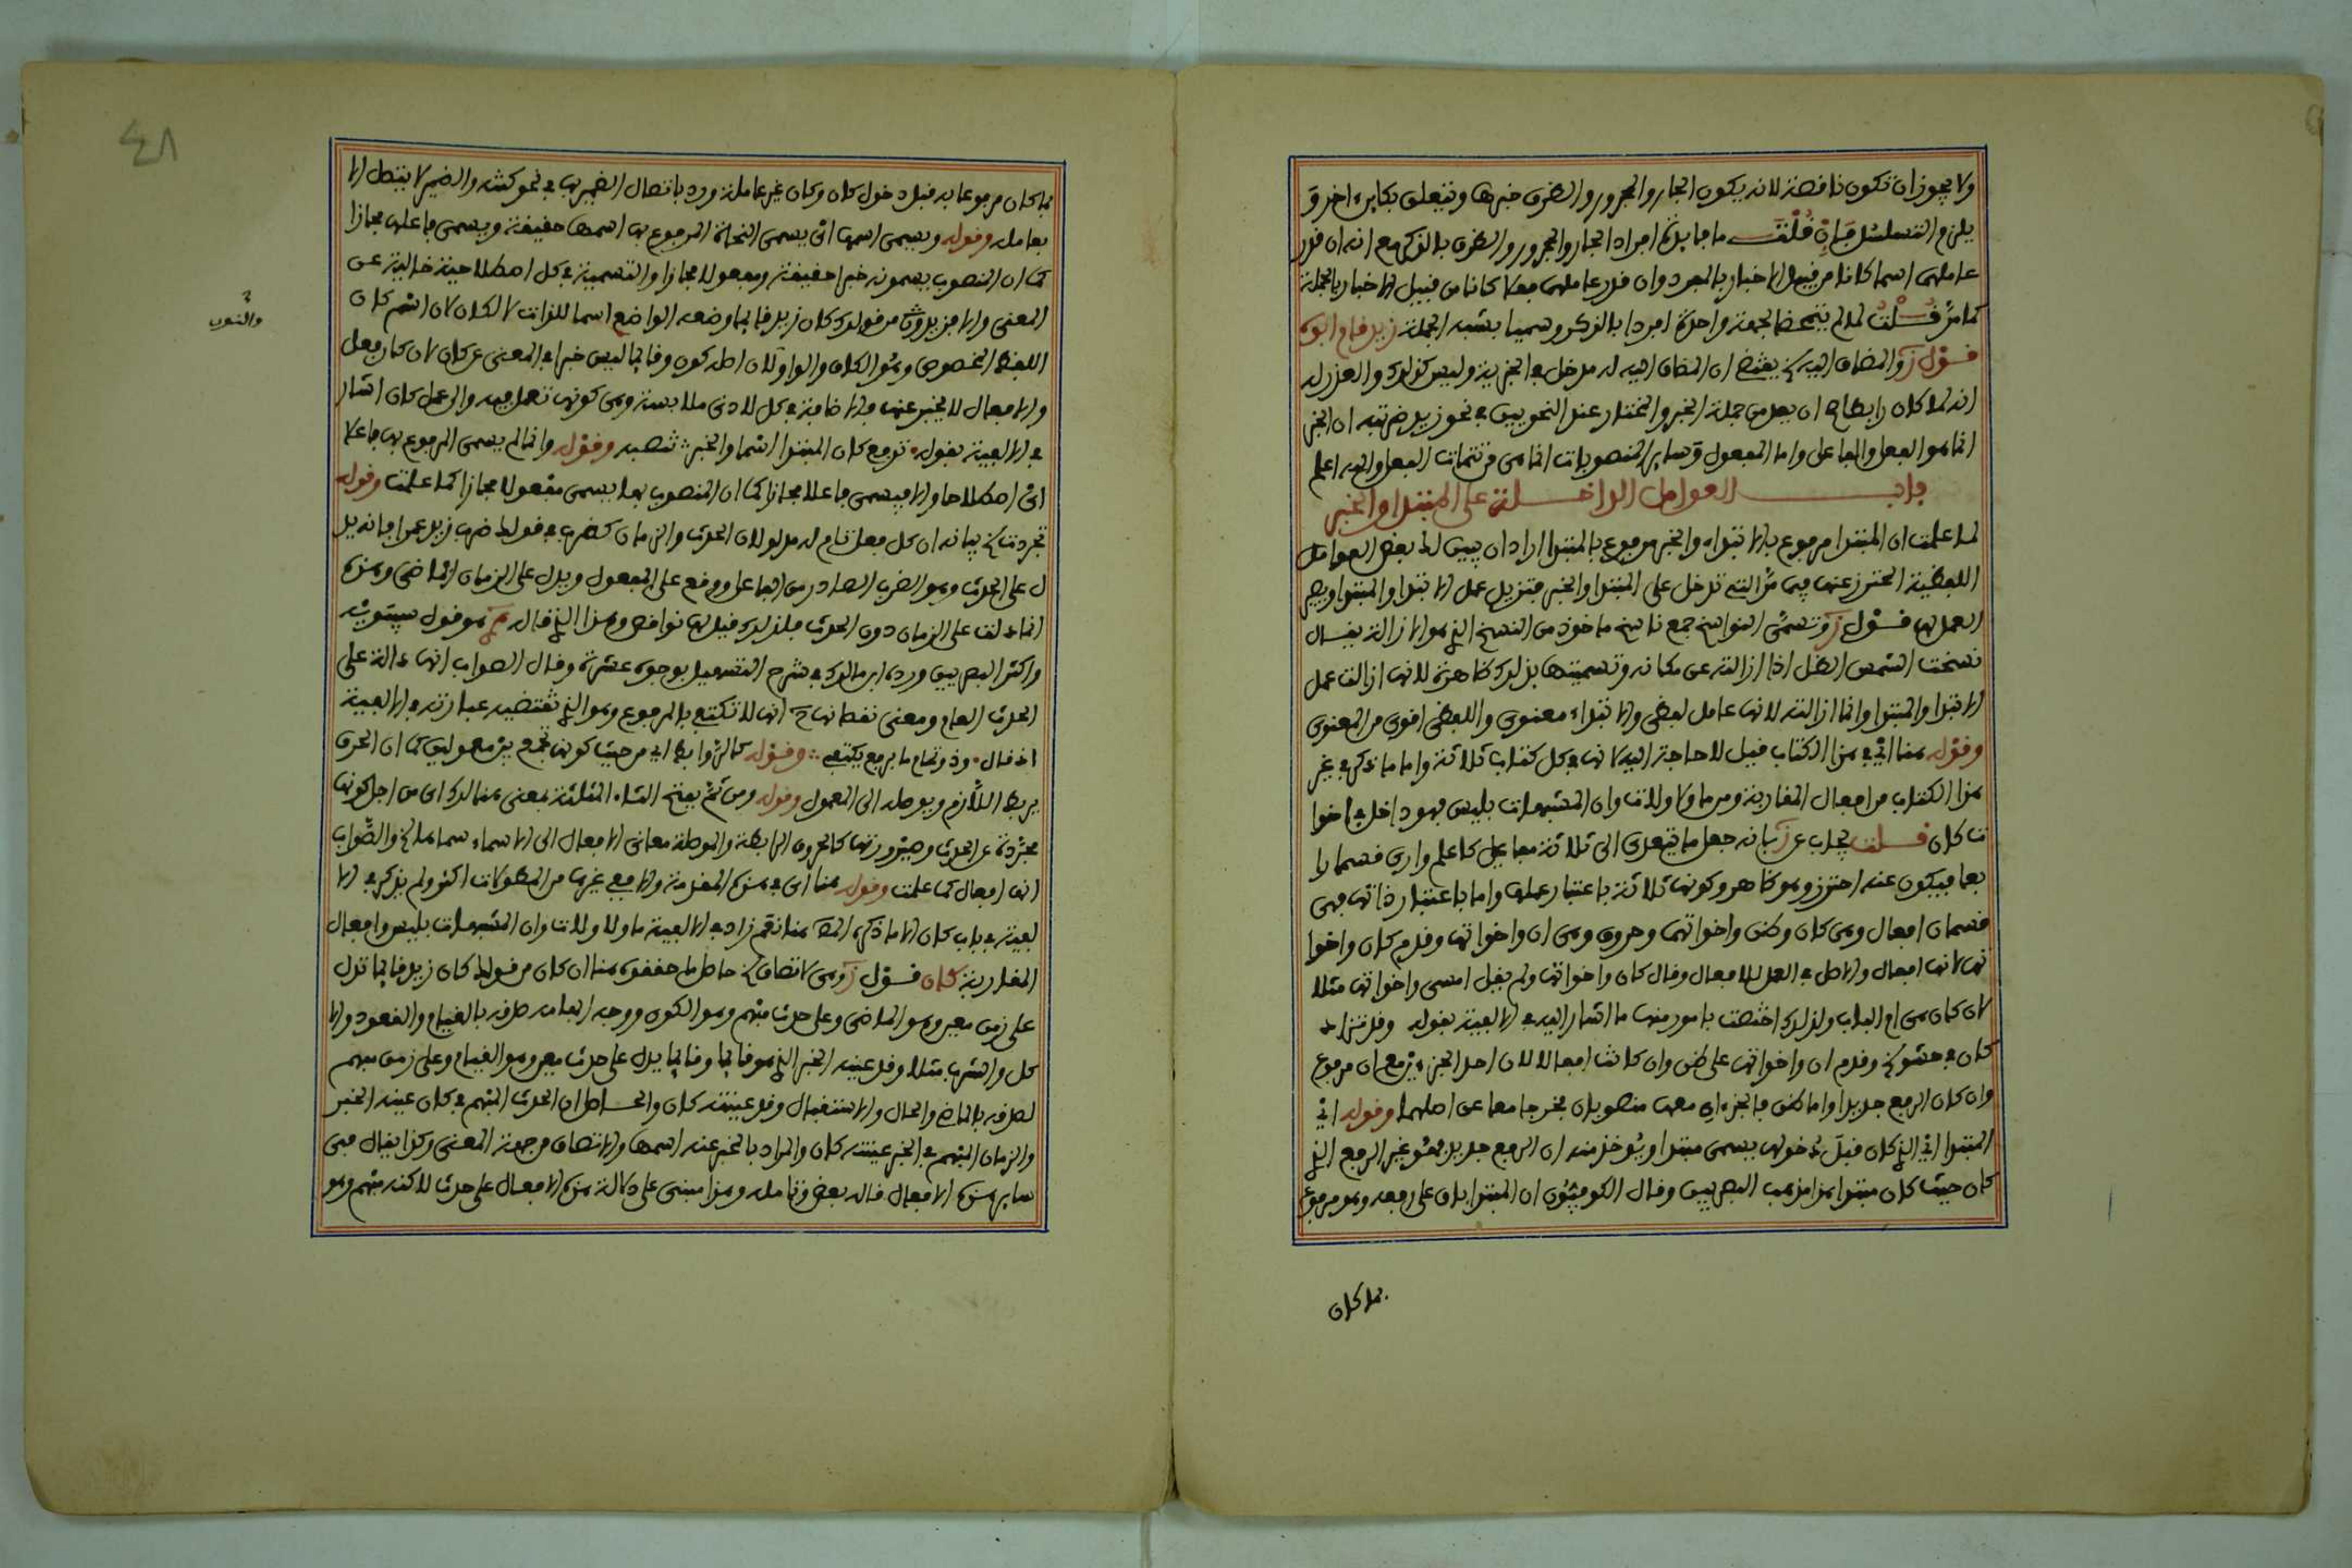 ولا يجوز ان تكون ناقصة لانه يكون الجار والمجرور والظرف خبرها وتتعلق بكاين اخر و
يلزم التسلسل فان قلت ما فايدة افراد الجار والمجرور والظرف بالذكر مع انه ان قدر
عاملهن اسما كانا من قبيل الاخبار بالمفرد وان قدر عاملهن فعلا كانا من قبيل الاخبار بالجملة
كما مر قلت لما لم يتمحضا لجهة واحدة افردا بالذكر وسميا بشبه الجملة زيد قام ابوه
قول ز والمضاف اليه الخ يقتضي ان المضاف اليه له مدخل في الخبرية وليس كذلك والعذر له
انه لما كان رابطا صح ان يعد من جملة الخبر والمختار عند النحويين في نحو زيد ضربته ان الخبر
انما هو الفعل والفاعل واما المفعول وساير المنصوبات انما هي من تتمات الفعل والله اعلم
باب العوامل الداخلة على المبتدا والخبر
لما علمت ان المبتدا مرفوع بالابتداء والخبر مرفوع بالمبتدا اراد ان يبين لك بعض العوامل
اللفظية المحترز عنها فيما مر التي تدخل على المبتدا والخبر فتزيل عمل الابتدا والمبتدا ويصير
العمل لها قول ز وتسمى النواسخ جمع ناسخ ماخوذ من النسخ الذي هو الازالة يقال
نسخت الشمس الظل اذا ازالته عن مكانه وتسميتها بذلك ظاهرة لانها ازالت عمل
الابتدا والمبتدا وانما ازالته لانها عامل لفظي والابتداء معنوي واللفظي اقوى من المعنوي
وقوله هنا اي في هذا الكتاب قيل لا حاجة اليه لانها في كل كتاب ثلاثة واما ما ذكر في غير
هذا الكتاب من افعال المقاربة ومن ما ولا ولات وان المشبهات بليس فهو داخل في اخوا
ت كان قلت يجاب عن ز بانه جعل ما يتعدى الى ثلاثة مفاعيل كاعلم وارى قسما را
بعا فيكون عنه احترز وهو ظاهر وكونها ثلاثة باعتبار عملها واما باعتبار ذاتها فهي
قسمان افعال وهي كان وظن واخواتهما وحروف وهي ان واخواتها وقدم كان واخوا
تها لانها افعال والاصل في العمل للافعال وقال كان واخواتها ولم يقل امسى واخواتها مثلا
لان كان هي ام الباب ولذلك اختصت بامور منها ما اشار اليه في الالفية بقوله وقد تزاد
كان في حشو الخ وقدم ان واخواتها على ظن وان كانت افعالا لان احد الجزءين مع ان مرفوع
وان كان الرفع جديدا واما ظن فالجزءان معها منصوبان فخرجا معا عن اصلهما وقوله اي
المبتدا اي الذي كان قبل دخولها يسمى مبتدا ويؤخذ منه ان الرفع جديد فهو غير الرفع الذي
كان حيث كان مبتدا هذا مذهب البصريين وقال الكوفيون ان المبتدا باق على رفعه وهو مرفوع
بما كان
٤٨
بما كان مرفوعا به قبل دخول كان وكان غير عاملة ورد باتصال الضمير بها في نحو كنته والضمير لا يتصل الا
بعامله وقوله ويسمى اسمها اي يسمى النحاة المرفوع بها اسمها حقيقة ويسمى فاعلها مجازا
كما ان المنصوب يسمونه خبرا حقيقة ومفعولا مجازا والتسمية في كل اصطلاحية خالية عن
المعنى والا فزيد من قولك كان زيد قايما وضعه الواضع اسما للذات لا لكان لان اسم كان
اللفظ المخصوص وهو الكاف والواو لان اصله كون وقايما ليس خبرا في المعنى عن كان لان كان فعل
والافعال لا يخبر عنها والاضافة في كل لادنى ملابسة وهي كونها تعمل فيه والى عمل كان اشار
في الالفية بقوله ترفع كان المبتدا اسما والخبر تنصبه وقوله وانما لم يسمى المرفوع بها فاعلا
اي اصطلاحا والا فيسمى فاعلا مجازا كما ان المنصوب بها يسمى مفعولا مجازا كما علمت وقوله
تجردت الخ بيانه ان كل فعل تام له مدلولان الحدث والزمان كضرب في قولك ضرب زيد عمرا فانه يد
ل على الحدث وهو الضرب الصادر من الفاعل ووقع على المفعول ويدل على الزمان الماضي وهذه
انما دلت على الزمان دون الحدث فلذلك قيل لها نواقص وهذا الذي قال هو قول سيبويه
واكثر البصريين ورده ابن مالك في شرح التسهيل بوجوه عشرة وقال الصواب انها دالة على
الحدث العام ومعنى نقصانها انها لا تكتفي بالمرفوع وهو الذي تقتضيه عبارته في الالفية
اذ قال وذو تمام ما برفع يكتفي وقوله كالروابط اي من حيث كونها تجمع بين معمولين كما ان الحرف
يربط اللازم ويوصله الى المعمول وقوله ومن ثم بفتح الثاء المثلثة بمعنى هنالك اي من اجل كونها
مجردة عن الحدث وصيرورتها كالحروف الرابطة والموصلة معاني الافعال الى الاسماء سماها الخ والصواب
انها افعال كما علمت وقوله هنا اي في هذه المقدمة والا ففي غيرها من المطولات اكثر ولم يذكر في الا
لفية في باب كان الا ما ذكره هنا نعم زاد في الالفية ما ولا ولات وان المشبهات بليس وافعال
المقاربة كان قول ز وهي لاتصاف الخ حاصل ما حققوه هنا ان كان من قولك كان زيد قايما تدل
على زمن معين وهو الماضي وعلى حدث مبهم وهو الكون ووجه ابهامه صدقه بالقيام والقعود والا
كل والشرب مثلا وقد عينه الخبر الذي هو قايما وقايما يدل على حدث معين وهو القيام وعلى زمن مبهم
لصدقه بالماضي والحال والاستقبال وقد عينته كان والحاصل ان الحدث المبهم في كان عينه الخبر
والزمان المبهم في الخبر عينته كان والمراد بالخبر عنه اسمها والاتصاف من جهة المعنى وكذا يقال في
ساير هذه الافعال قاله بعض وتامله وهذا مبني على دلالة هذه الافعال على حدث لاكنه مبهم وهو